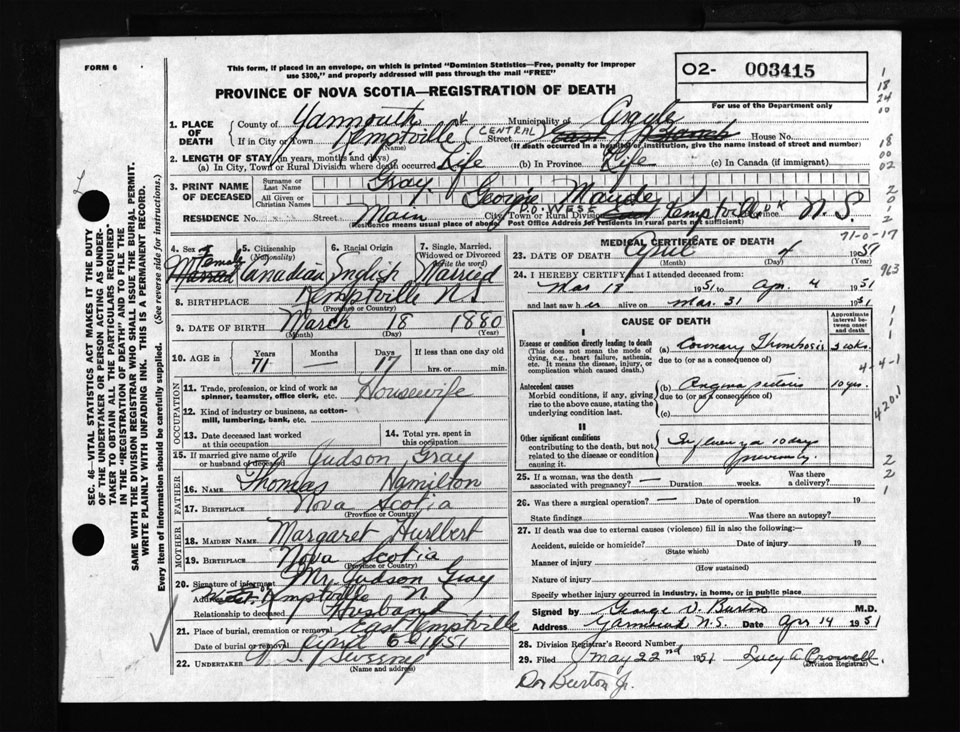 FORM 6
This form, if placed in an envelope, on which is printed "Dominion Statistics—Free, penalty for improper
use $300," and properly addressed will pass through the mail "FREE"
PROVINCE OF NOVA SCOTIA—REGISTRATION OF DEATH
O2- 003415
For use of the Department only
1. PLACE OF DEATH
County of Yarmouth Municipality of Argyle
If in City or Town Kemptville (CENTRAL) Street East Branch House No.
(Name) (If death occurred in a hospital or institution, give the name instead of street and number)
2. LENGTH OF STAY (in years, months and days)
(a) In City, Town or Rural Division where death occurred Life (b) In Province Life (c) In Canada (if immigrant)
3. PRINT NAME OF DECEASED
Surname or Last Name Gray
All Given or Christian Names Georgie Maude
P.O. WEST
RESIDENCE No. Street Main City, Town or Rural Division East Kemptville Province N.S.
(Residence means usual place of abode. Post Office Address for residents in rural parts not sufficient)
4. Sex Female
Married
5. Citizenship (Nationality) Canadian
6. Racial Origin English
7. Single, Married, Widowed or Divorced (Write the word) Married
8. BIRTHPLACE Kemptville N.S
(Province or Country)
9. DATE OF BIRTH March 18 1880
(Month) (Day) (Year)
10. AGE in Years Months Days If less than one day old
71 — 17 hrs. or min.
OCCUPATION
11. Trade, profession, or kind of work as
spinner, teamster, office clerk, etc. Housewife
12. Kind of industry or business, as cotton-
mill, lumbering, bank, etc.
13. Date deceased last worked
at this occupation
14. Total yrs. spent in
this occupation
15. If married give name of wife
or husband of deceased Judson Gray
FATHER
16. NAME Thomas Hamilton
17. BIRTHPLACE Nova Scotia
(Province or Country)
MOTHER
18. MAIDEN NAME Margaret Hurlbert
19. BIRTHPLACE Nova Scotia
(Province or Country)
20. Signature of informant Mr Judson Gray
Address Kemptville N S
Relationship to deceased Husband
21. Place of burial, cremation or removal East Kemptville
Date of burial or removal April 6 1951
22. UNDERTAKER Sweeny
(Name and address)
MEDICAL CERTIFICATE OF DEATH
71-0-17
23. DATE OF DEATH April 4 1951
(Month) (Day) (Year)
24. I HEREBY CERTIFY that I attended deceased from:
Mar 18 1951 to Apr. 4 1951
and last saw her alive on Mar. 31 1951
CAUSE OF DEATH
Approximate
interval be-
tween onset
and death
I
Disease or condition directly leading to death
(This does not mean the mode of
dying, e.g., heart failure, asthenia,
etc. It means the disease, injury, or
complication which caused death.)
(a) Coronary Thrombosis 2 wks.
due to (or as a consequence of)
4-4-1
Antecedent causes
Morbid conditions, if any, giving
rise to above cause, stating the
underlying condition last.
(b) Angina pectoris 10 yrs.
due to (or as a consequence of)
(c)
420.1
II
Other significant conditions
contributing to the death, but not
related to the disease or condition
causing it.
Influenza 10 days
previously.
25. If a woman, was the death
associated with pregnancy? — Duration weeks. Was there
a delivery?
26. Was there a surgical operation? — Date of operation 19
State findings Was there an autopsy?
27. If death was due to external causes (violence) fill in also the following:—
Accident, suicide or homicide? Date of injury 19
(State which)
Manner of injury
(How sustained)
Nature of injury
Specify whether injury occurred in industry, in home, or in public place
Signed by George V. Burton M.D.
Address Yarmouth N.S. Date Apr 14 1951
28. Division Registrar's Record Number
29. Filed May 22nd 1951 Lucy A Crowell
(Division Registrar)
Don Burton Jr.
SEC. 46—VITAL STATISTICS ACT MAKES IT THE DUTY
OF THE UNDERTAKER OR PERSON ACTING AS UNDER-
TAKER TO OBTAIN ALL THE PARTICULARS REQUIRED
IN THE "REGISTRATION OF DEATH" AND TO FILE THE
SAME WITH THE DIVISION REGISTRAR WHO SHALL ISSUE THE BURIAL PERMIT.
WRITE PLAINLY WITH UNFADING INK. THIS IS A PERMANENT RECORD.
Every item of information should be carefully supplied. (See reverse side for instructions.)
1
18
24
00
18
00
02
2
0
12
963
1
1
1
2
2
1